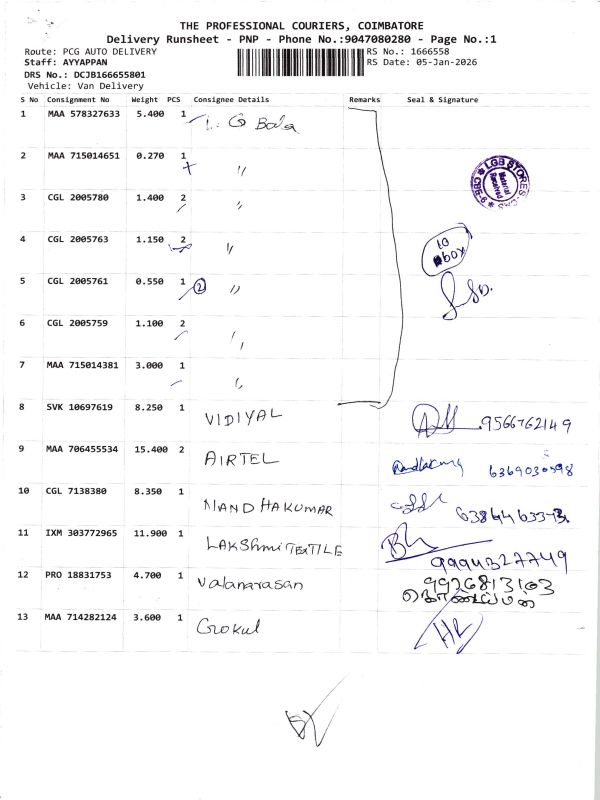 THE PROFESSIONAL COURIERS, COIMBATORE
Delivery Runsheet - PNP - Phone No.:9047080280 - Page No.:1
Route: PCG AUTO DELIVERY
RS No.: 1666558
Staff: AYYAPPAN
RS Date: 05-Jan-2026
DRS No.: DCJB166655801
Vehicle: Van Delivery
S No Consignment No Weight PCS Consignee Details Remarks Seal & Signature
1 MAA 578327633 5.400 1 L. G Bala
2 MAA 715014651 0.270 1 〃
LGB STORES
Material Received
3 CGL 2005780 1.400 2 〃
4 CGL 2005763 1.150 2 〃
5 CGL 2005761 0.550 1 2 〃
6 CGL 2005759 1.100 2 〃
7 MAA 715014381 3.000 1 〃
8 SVK 10697619 8.250 1 VIDIYAL 9566762149
9 MAA 706455534 15.400 2 AIRTEL
10 CGL 7138380 8.350 1 NANDHAKUMAR
11 IXM 303772965 11.900 1 LAKSHMI TEXTILE 9994327749
12 PRO 18831753 4.700 1 Valanarasan 9926813103
13 MAA 714282124 3.600 1 Gokul